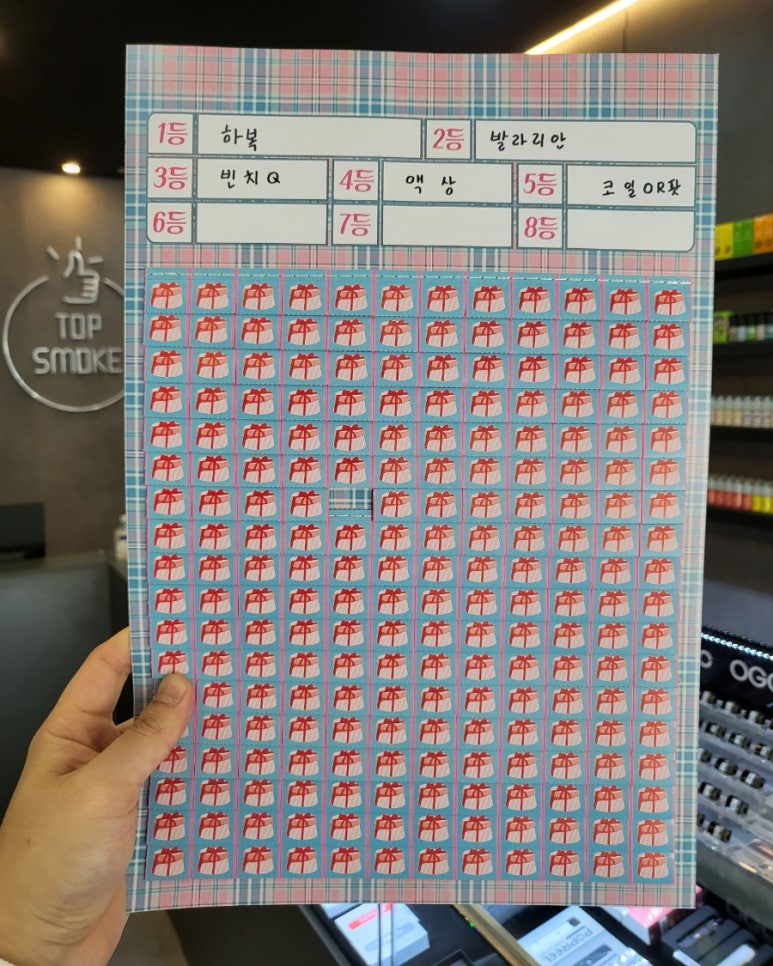 1등 하복 2등 발라리안
3등 빈치Q 4등 액상 5등 코일OR팟
6등 7등 8등
TOP
SMOKE
OGO
POPREEL